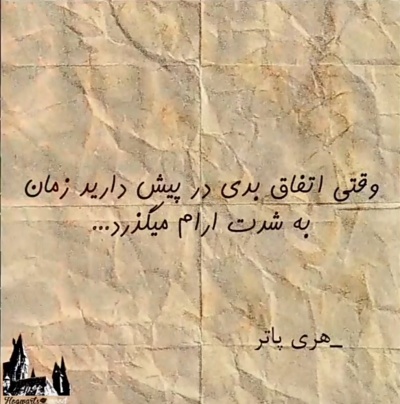 وقتی اتفاق بدی در پیش دارید زمان
به شدت ارام میگذرد...
_هری پاتر
Hogwarts